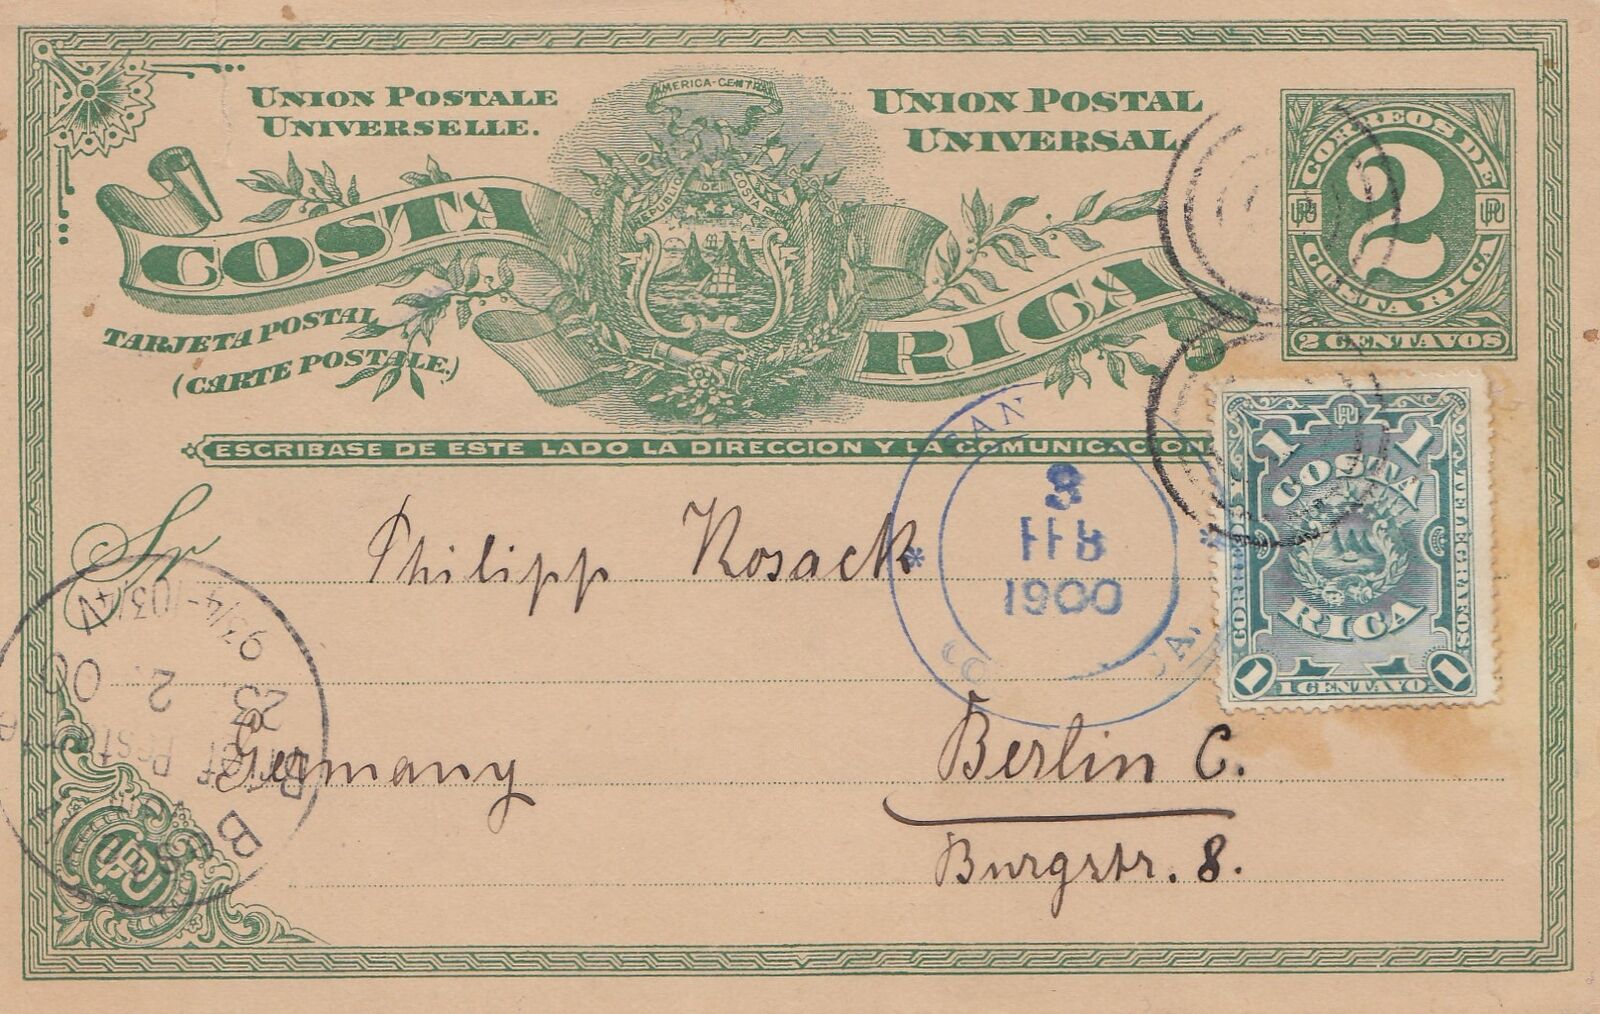 UNION POSTALE
UNIVERSELLE.
AMERICA-CENTRAL
UNION POSTAL
UNIVERSAL
REPUBLICA DE COSTA RICA
COSTA RICA
TARJETA POSTAL
(CARTE POSTALE.)
CORREOS DE
2
UPU UPU
COSTA RICA
2 CENTAVOS
ESCRIBASE DE ESTE LADO LA DIRECCION Y LA COMUNICACION
UPU
1 1
COSTA
RICA
CORREOS Y TELEGRAFOS
1 1
1 CENTAVO
SAN
3
FEB
1900
Sr Philipp Kosack
Berlin C.
Germany
Burgstr. 8.
23
2. 00
Brief Post
UPU